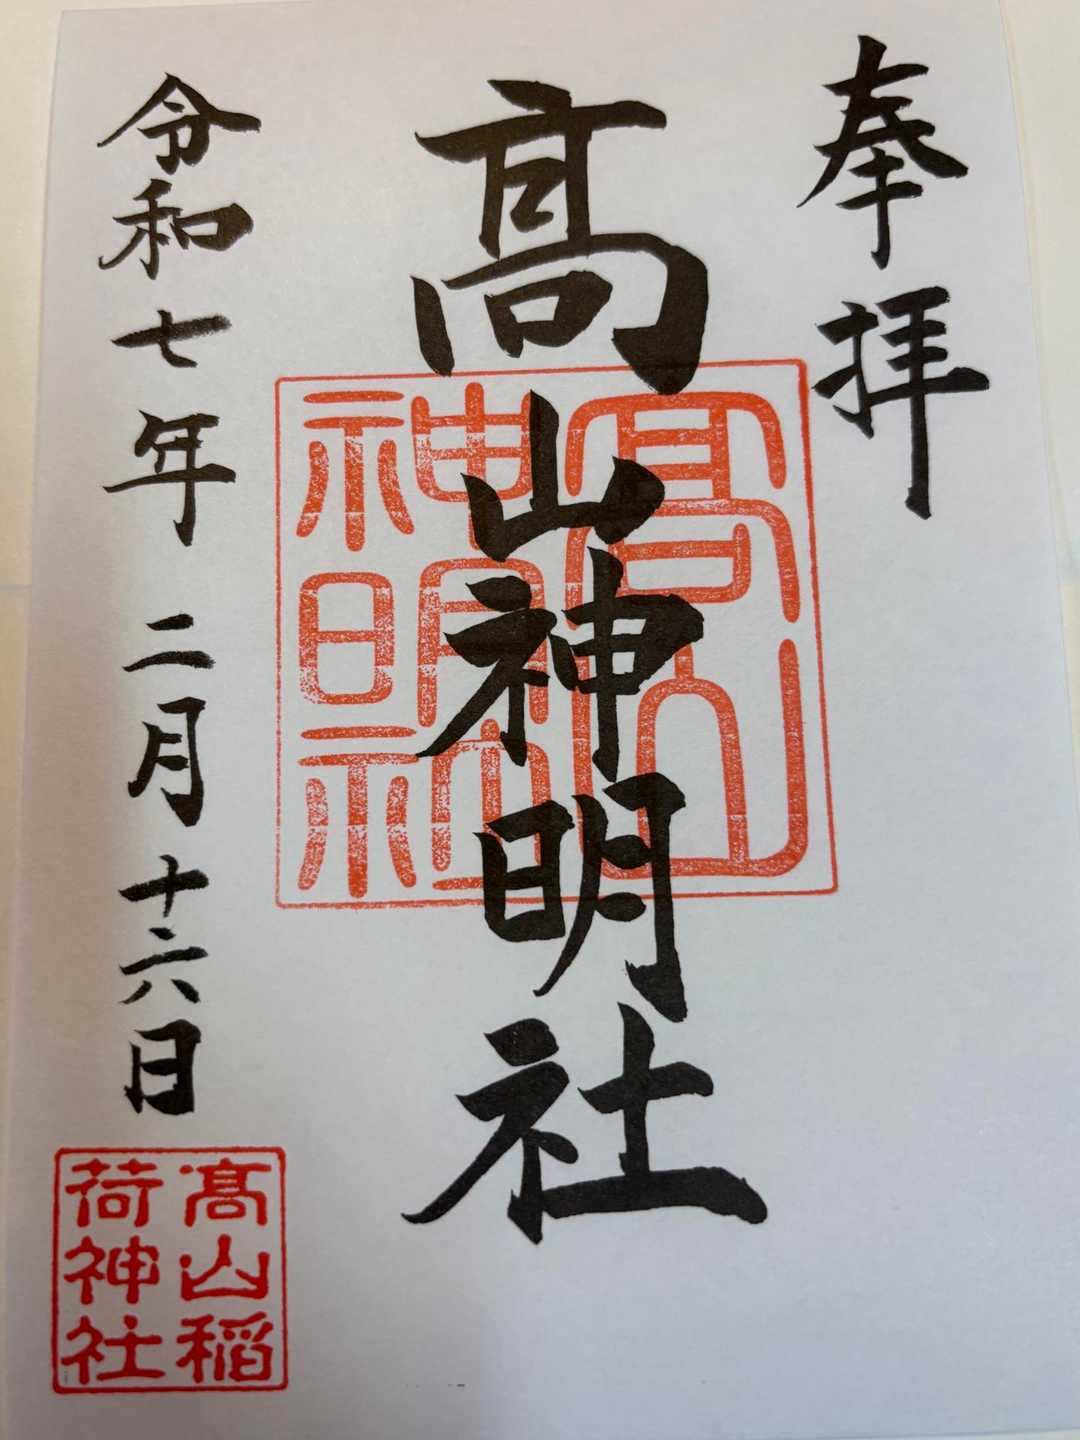 奉拝
髙山神明社
髙山
神明社
令和七年二月十六日
髙山稲
荷神社